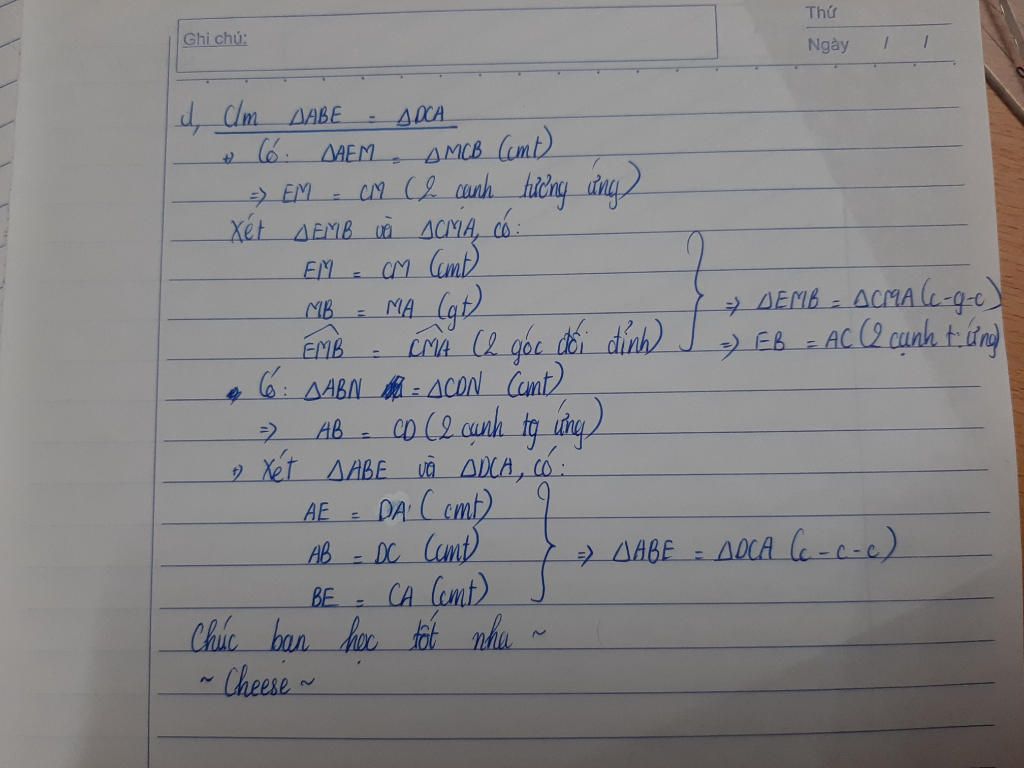 Ghi chú:
Thứ
Ngày / /
d, C/m ΔABE = ΔDCA
Có: ΔAEM = ΔMCB (cmt)
=> EM = CM (2 cạnh tương ứng)
Xét ΔEMB và ΔCMA, có:
EM = CM (cmt)
MB = MA (gt)
EMB = CMA (2 góc đối đỉnh)
=> ΔEMB = ΔCMA (c-g-c)
=> EB = AC (2 cạnh t.ứng)
Có: ΔABN = ΔCDN (cmt)
=> AB = CD (2 cạnh tg ứng)
Xét ΔABE và ΔDCA, có:
AE = DA (cmt)
AB = DC (cmt)
BE = CA (cmt)
=> ΔABE = ΔDCA (c-c-c)
Chúc bạn học tốt nha ~
~ Cheese ~